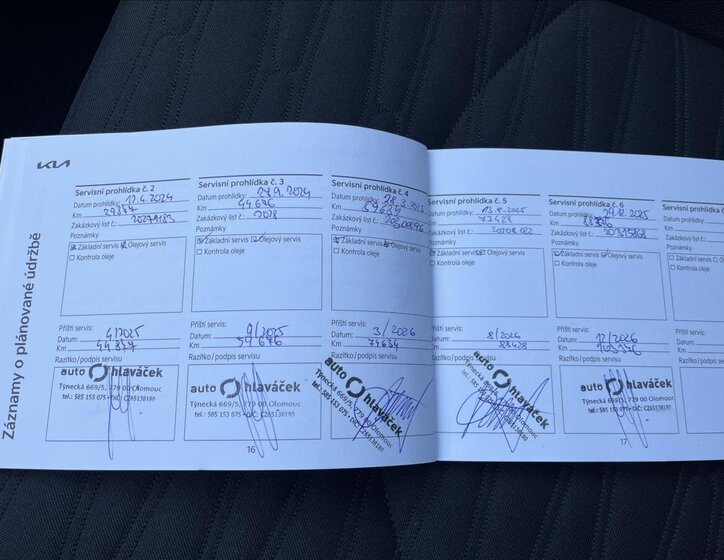 KIA
Záznamy o plánované údržbě
Servisní prohlídka č. 2
Datum prohlídky: 12.4.2024
Km 29877
Zakázkový list č.:
Poznámky
Základní servis Olejový servis
Kontrola oleje
Příští servis:
Datum: 4/2025
Km 44 877
Razítko/podpis servisu
auto hlaváček
Týnecká 669/5, 779 00 Olomouc
tel.: 585 153 075 • DIČ: CZ65138180
Servisní prohlídka č. 3
Datum prohlídky: 27.9.2024
Km 44646
Zakázkový list č.:
Poznámky
Základní servis Olejový servis
Kontrola oleje
Příští servis:
Datum: 9/2025
Km 59 646
Razítko/podpis servisu
auto hlaváček
Týnecká 669/5, 779 00 Olomouc
tel.: 585 153 075 • DIČ: CZ65138180
16
Servisní prohlídka č. 4
Datum prohlídky:
Km 59634
Zakázkový list č.:
Poznámky
Základní servis Olejový servis
Kontrola oleje
Příští servis:
Datum: 3/2026
Km 74634
Razítko/podpis servisu
auto hlaváček
Týnecká 669/5, 779 00 Olomouc
tel.: 585 153 075 • DIČ: CZ65138180
č. 5
prohlídky: 13.8.2025
73428
list č.:
servis
oleje
servis:
8/2026
88428
servisu
auto hlaváček
Olomouc
Servisní prohlídka č. 6
Datum prohlídky: 29.12.2025
Km
Zakázkový list č.:
Poznámky
Základní servis Olejový servis
Kontrola oleje
Příští servis:
Datum: 12/2026
Km 103976
Razítko/podpis servisu
auto hlaváček
Týnecká 669/5, 779 00 Olomouc
tel.: 585 153 075 • DIČ: CZ65138180
17
Servisní prohlídka
Datum prohlídky:
Km
Zakázkový list č.:
Poznámky
Základní servis
Kontrola oleje
Příští servis:
Datum:
Km
Razítko/podpis servisu